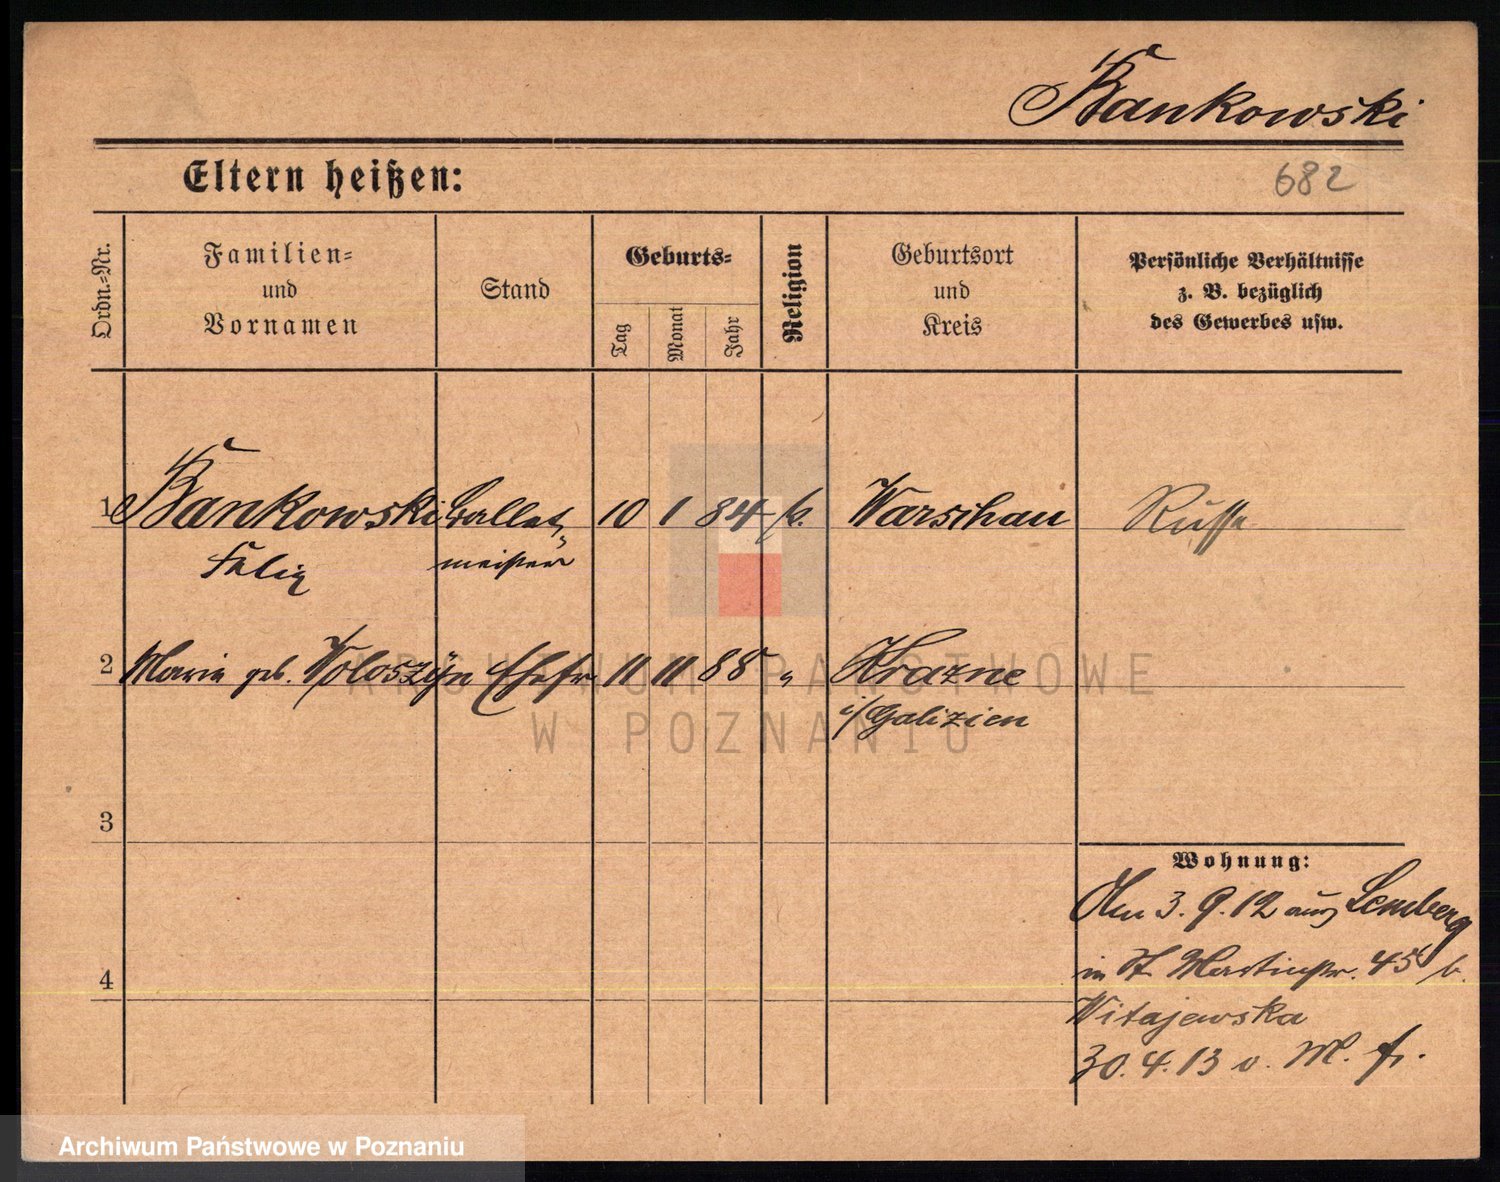 Bankowski
682
Eltern heißen:
Ordn.-Nr.
Familien-
und
Vornamen
Stand
Geburts-
Tag
Monat
Jahr
Religion
Geburtsort
und
Kreis
Persönliche Verhältnisse
z. B. bezüglich
des Gewerbes usw.
1 Bankowski Ballet- 10 1 84 k. Warschau Russe
Felix meister
2 Marie geb. Woloszyn Ehefr 11 11 88 " Krazne
i/Galizien
3
Wohnung:
Am 3. 9. 12 aus Lemberg
in St Martinstr. 45 b.
4
Witajewska
30. 4. 13 v. M. fr.
ARCHIWUM PAŃSTWOWE
W POZNANIU
Archiwum Państwowe w Poznaniu